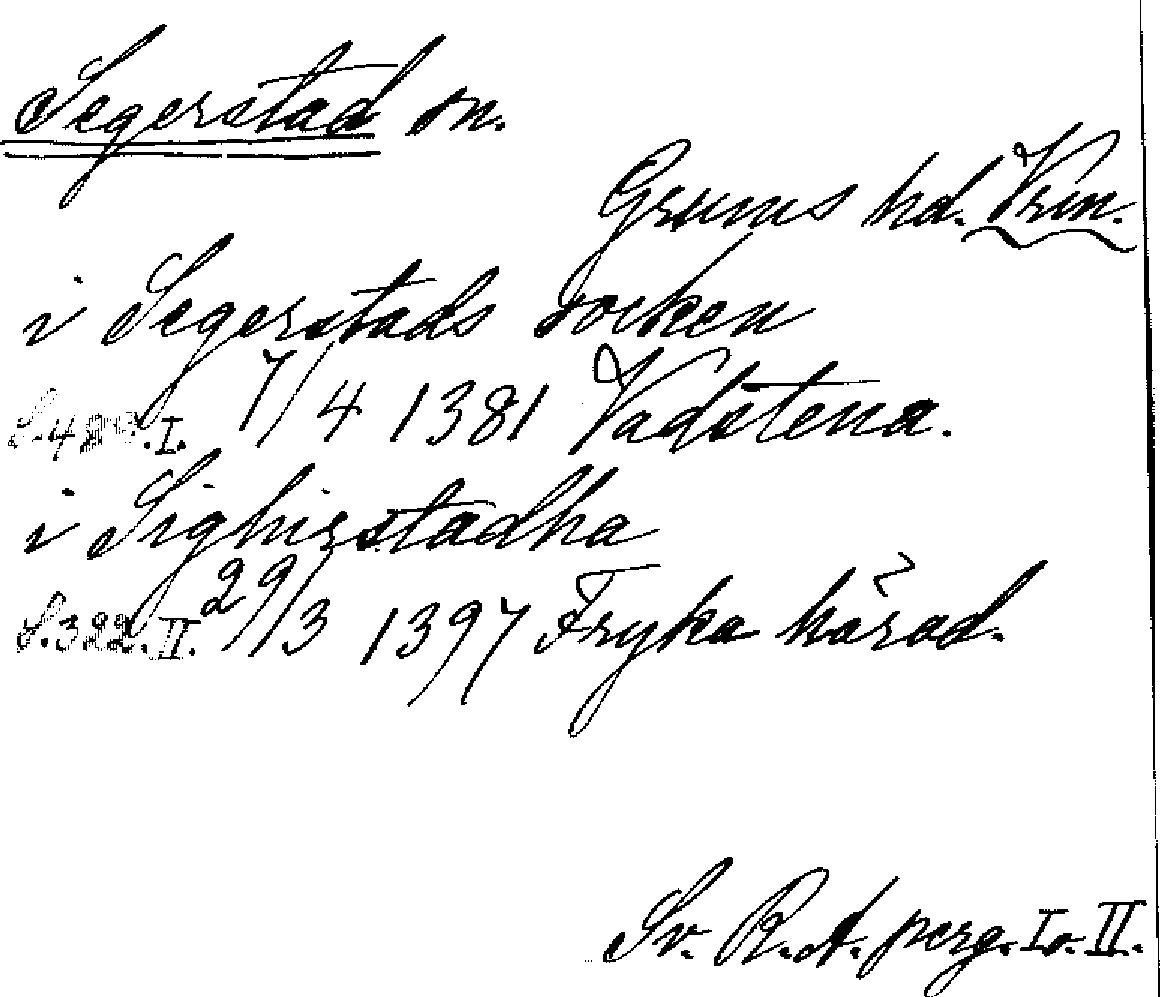 Segerstad sn.
Grums hd. Vrm.
i Segerstads socken
I. 7/4 1381 Vadstena.
i Sighirstadha
S. 322. II. 29/3 1397 Fryka härad.
Sv. R. A. perg. I o. II.